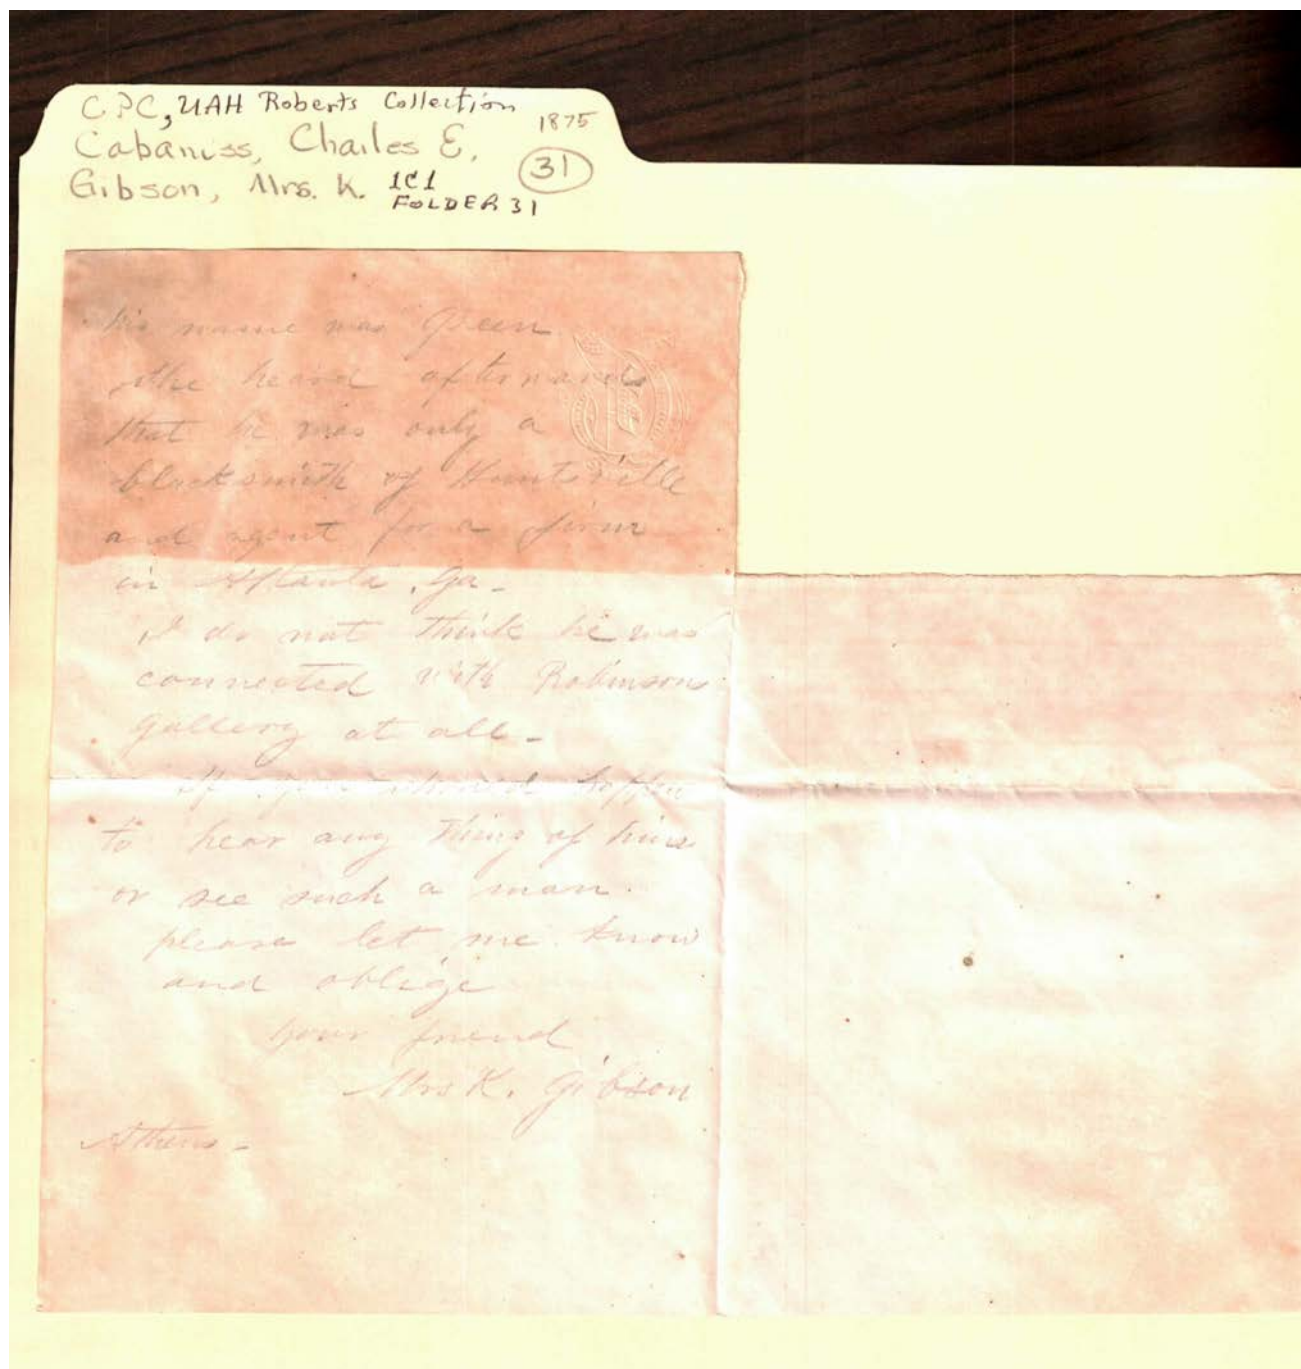 C.P.C, UAH Roberts Collection
1875
Cabaniss, Charles E.
31
Gibson, Mrs. K. 1C1
FOLDER 31
his name was Green
I the heard afterwards
that he was only a
blacksmith of Huntsville
and agent for a firm
in Atlanta, Ga-
I do not think he was
connected with Robinsons
gallery at all-
If you should happen
to hear any thing of him
or see such a man.
please let me know
and oblige
your friend
Mrs K. Gibson
Athens-